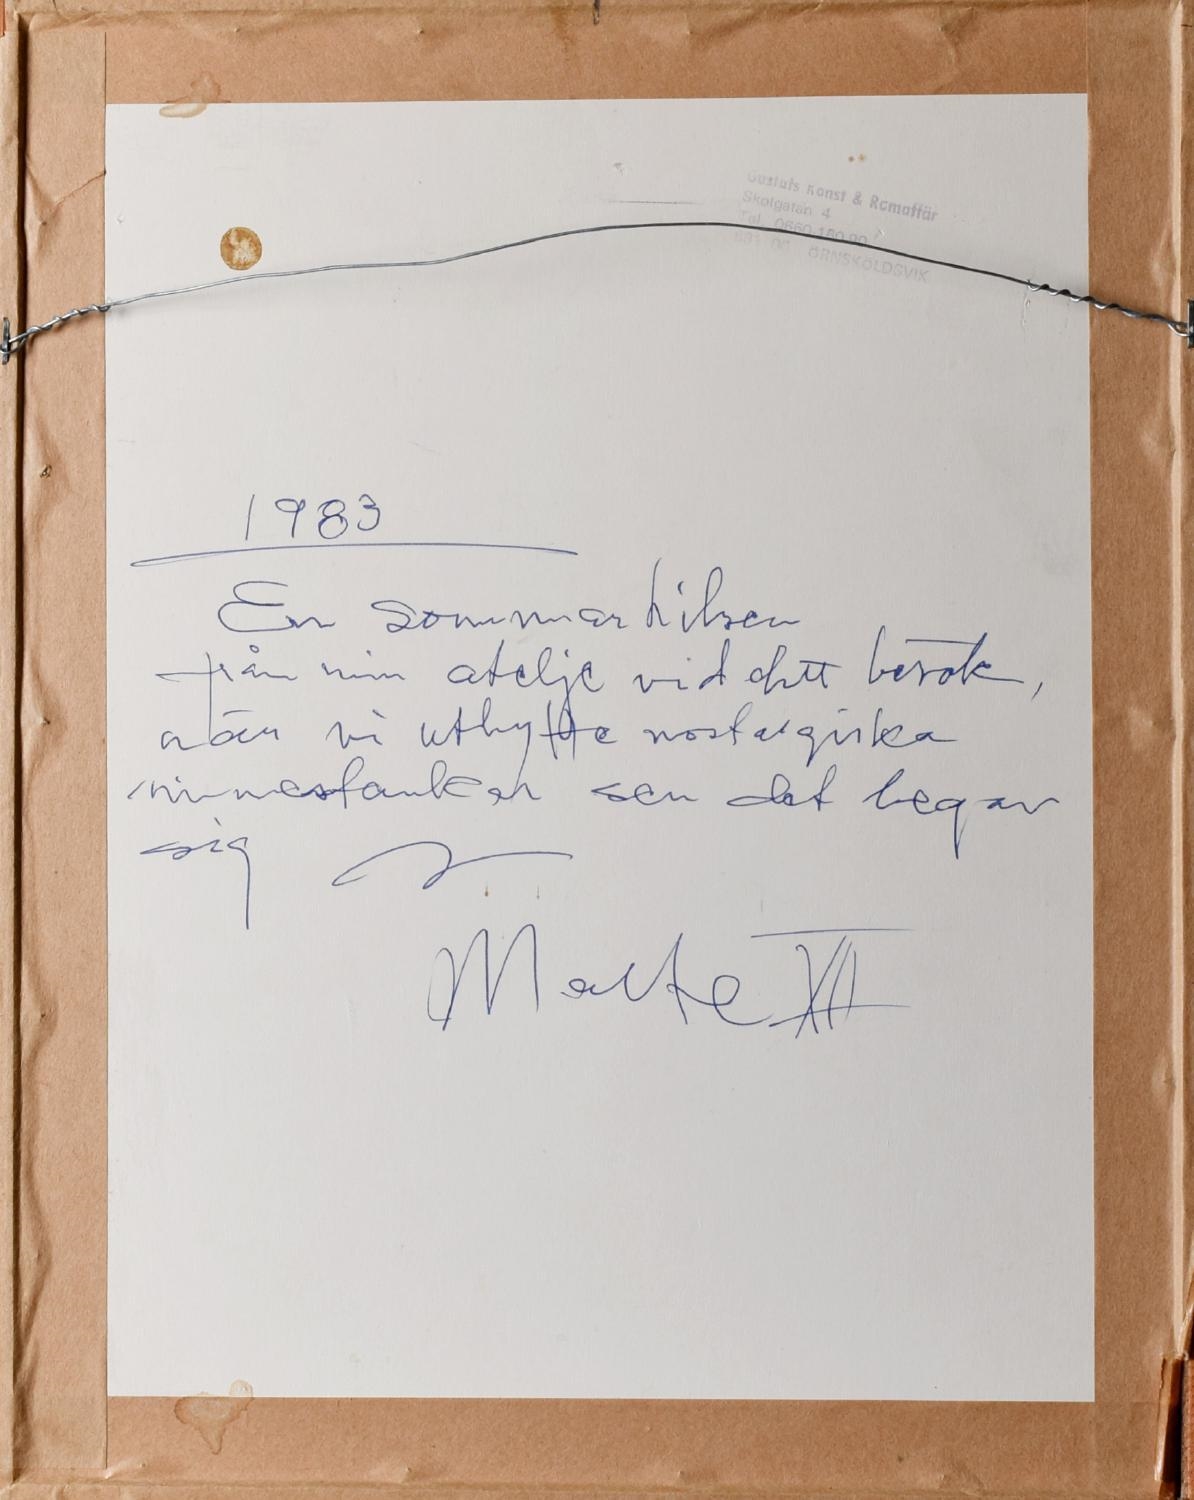 Gustafs Konst & Ramaffär
Skolgatan 4
Tel. 0660-180 90
ÖRNSKÖLDSVIK
1983
En sommarhälsen
från min ateljé vid ditt besök,
när vi utbytte nostalgiska
minnestankar sen det begav
sig
Malte XII